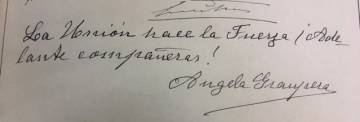 La Unión hace la Fuerza ¡Ade-
lante compañeras!
Angela Graupera